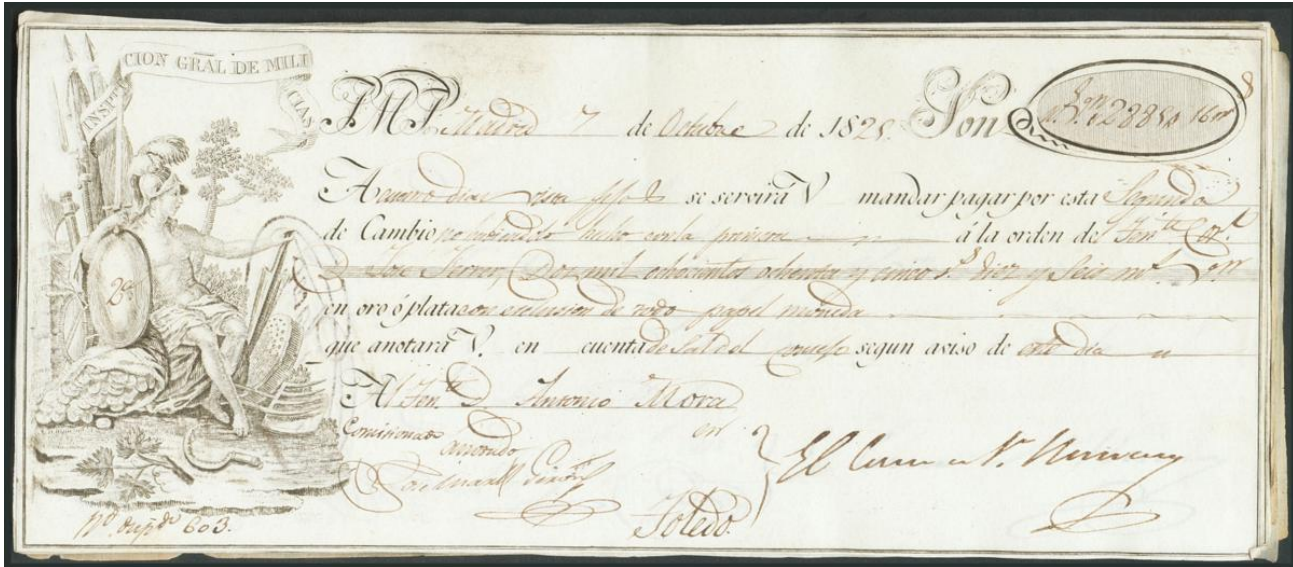 INSPECCION GRĀL DE MILICIAS
Madrid 7 de Octubre de 1825. Son
16 m
se servirá V mandar pagar por esta Segunda
de Cambio no habiendolo hecho con la primera á la orden del Ten.te Cor.l
D Jose Ferrer, Dos mil ochocientos ochenta y cinco r.s diez y Seis m.s
en oro ó plata con exclusion de todo papel moneda
que anotará V. en cuenta segun aviso de este dia
2a
Al Ten.te D Antonio Mora
Comisionado en
anotado
Toledo.
603.